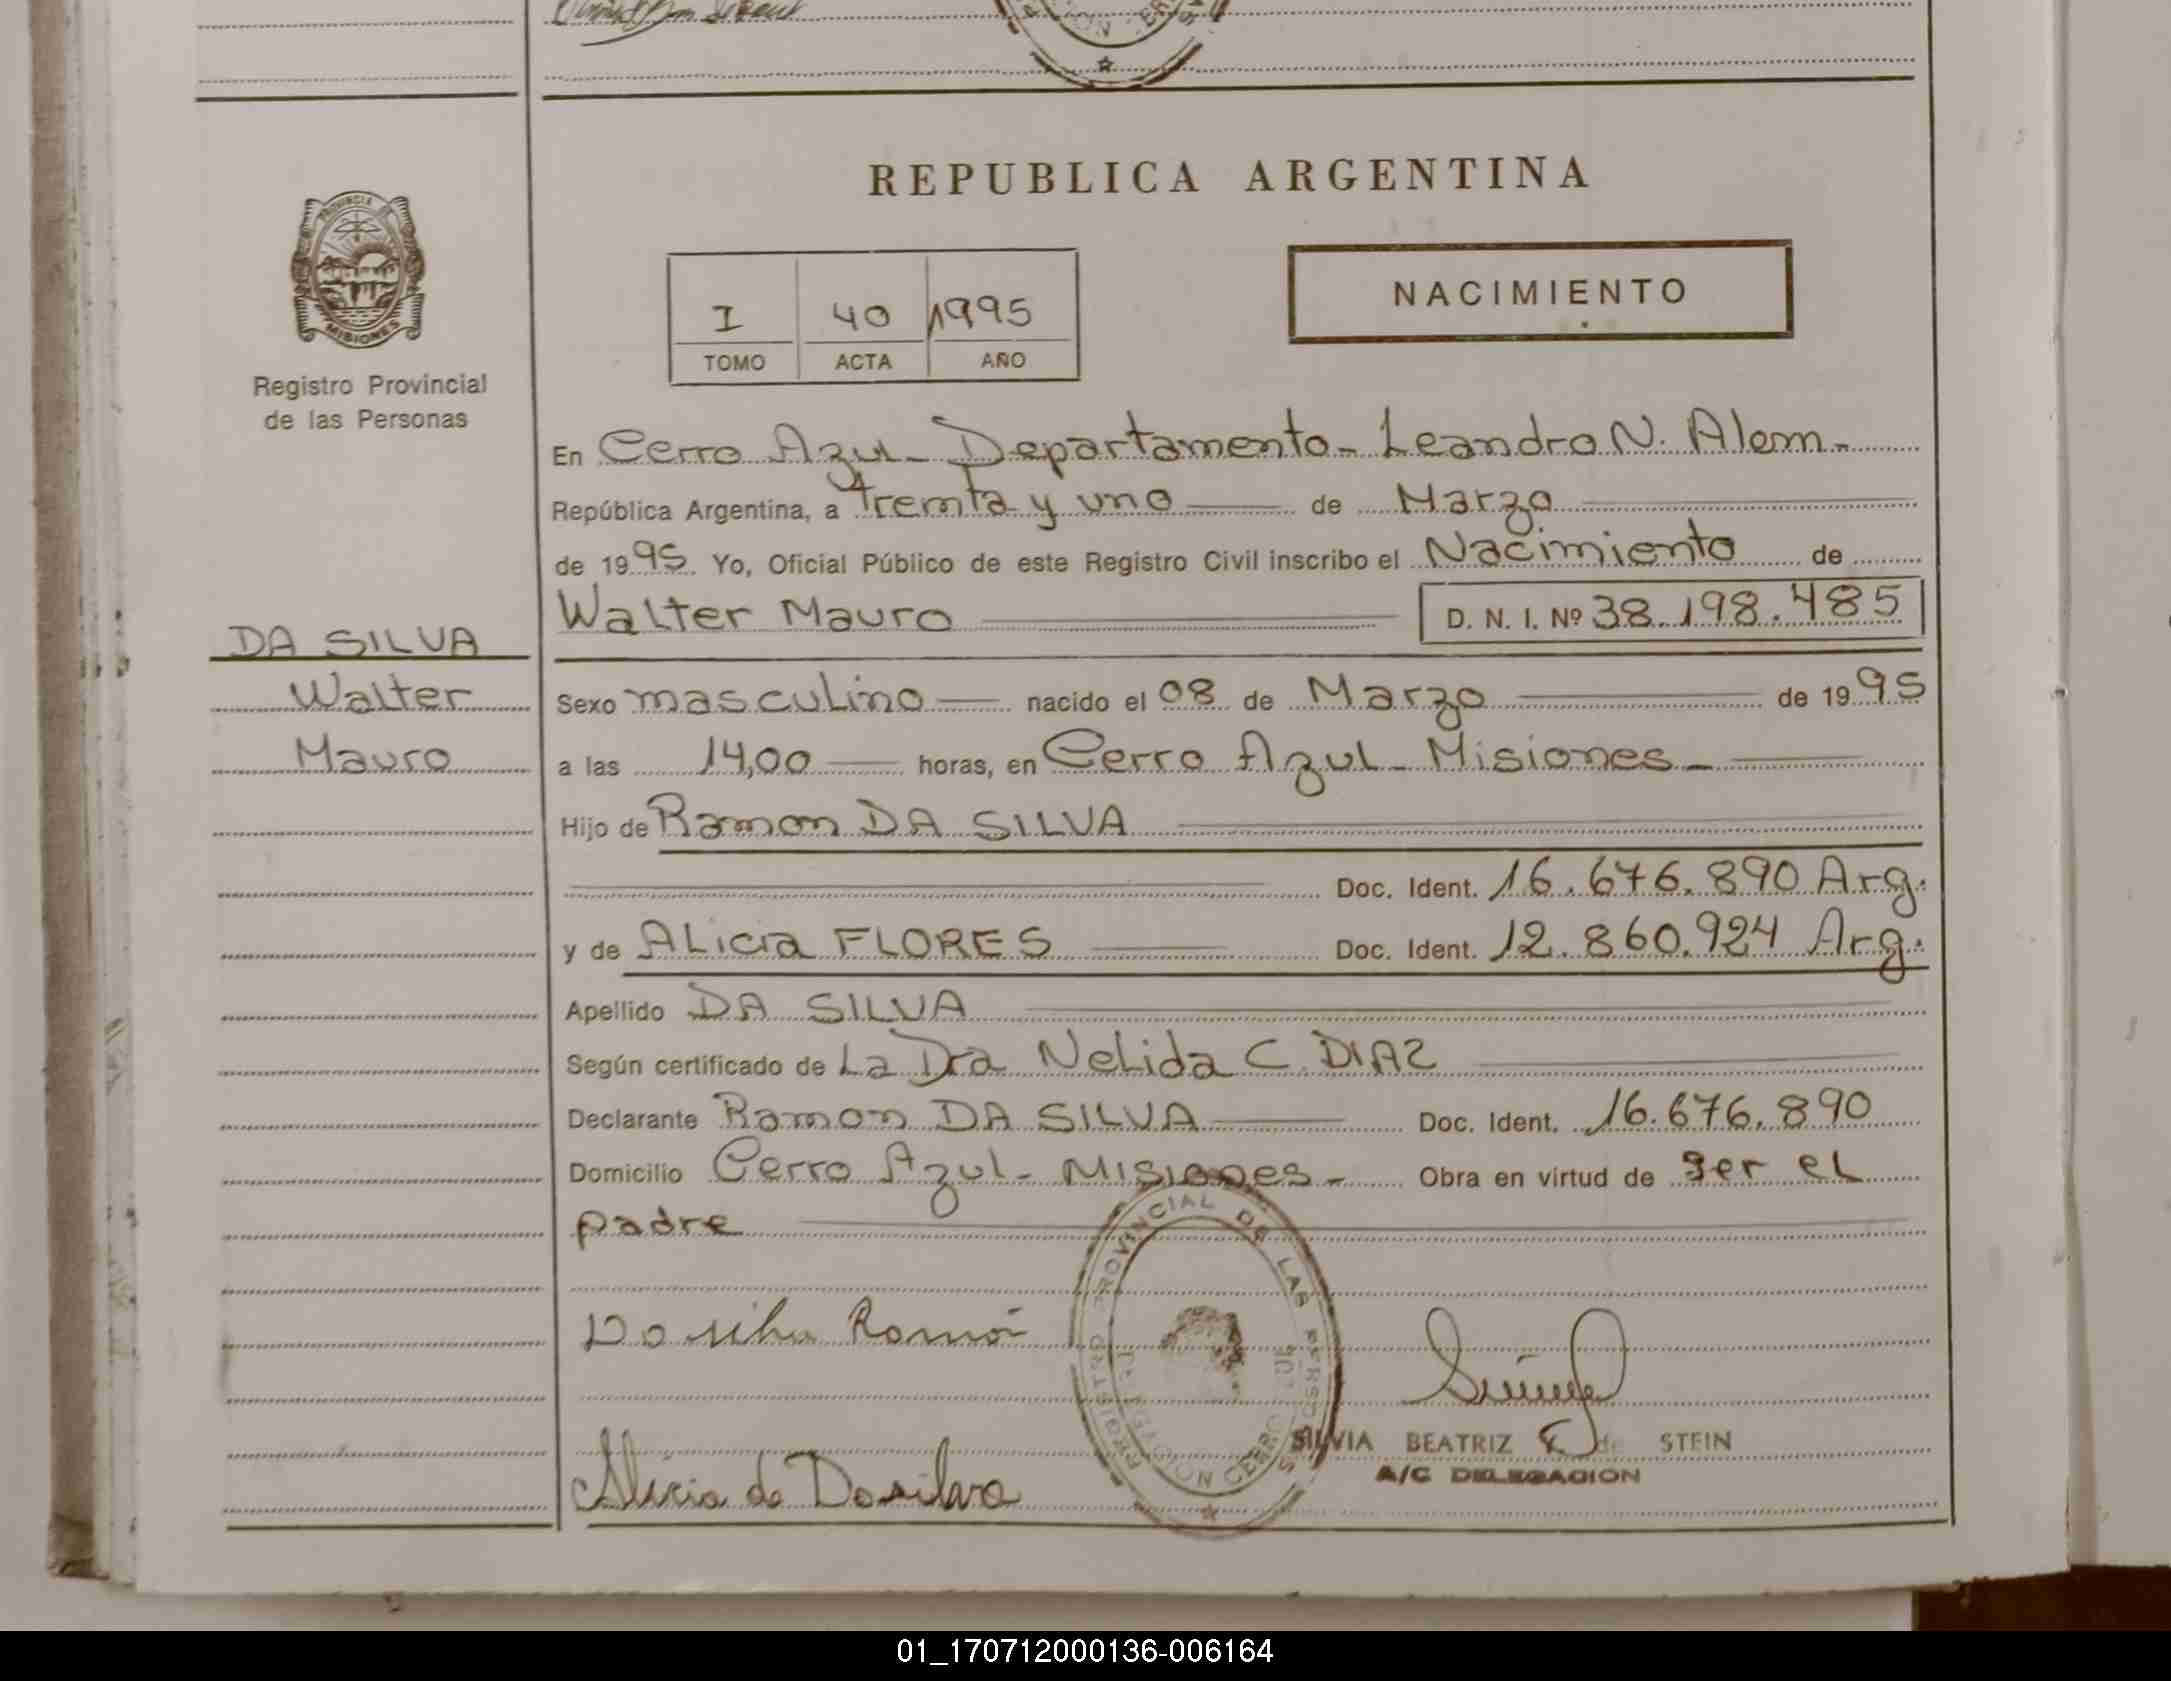 REPUBLICA ARGENTINA
PROVINCIA DE
MISIONES
Registro Provincial
de las Personas
I 40 1995
TOMO ACTA AÑO
NACIMIENTO
En Cerro Azul - Departamento - Leandro N. Alem -
República Argentina, a Treinta y uno de Marzo
de 1995 Yo, Oficial Público de este Registro Civil inscribo el Nacimiento de
Walter Mauro D. N. I. Nº 38.198.485
DA SILVA
Walter
Mauro
Sexo masculino nacido el 08 de Marzo de 1995
a las 14,00 horas, en Cerro Azul - Misiones -
Hijo de Ramon DA SILVA
Doc. Ident. 16.676.890 Arg.
y de ALicia FLORES Doc. Ident. 12.860.924 Arg.
Apellido DA SILVA
Según certificado de La Dra NeLida C. DIAZ
Declarante Ramon DA SILVA Doc. Ident. 16.676.890
Domicilio Cerro Azul - Misiones - Obra en virtud de ser el
padre
REGISTRO PROVINCIAL DE LAS PERSONAS
DELEGACION CERRO AZUL
Da silva Ramón
SILVIA BEATRIZ de STEIN
A/C DELEGACION
Alicia de Dasilva
01_170712000136-006164